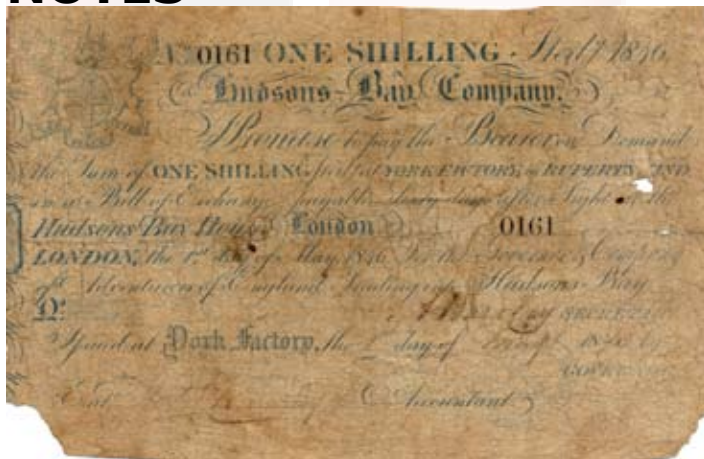 NOTES
No 0161 ONE SHILLING 1846
Hudsons Bay Company.
I Promise to pay the Bearer on Demand
the Sum of ONE SHILLING YORK FACTORY in RUPERTS LAND
in a Bill of Exchange payable Sixty days after Sight at the
Hudsons Bay House London 0161
LONDON, the 1st day of May 1846 For the Governor & Company
of Adventurers of England Trading into Hudsons Bay
SECRETARY
Issued at York Factory, the day of 18
GOVERNOR
Entd Accountant